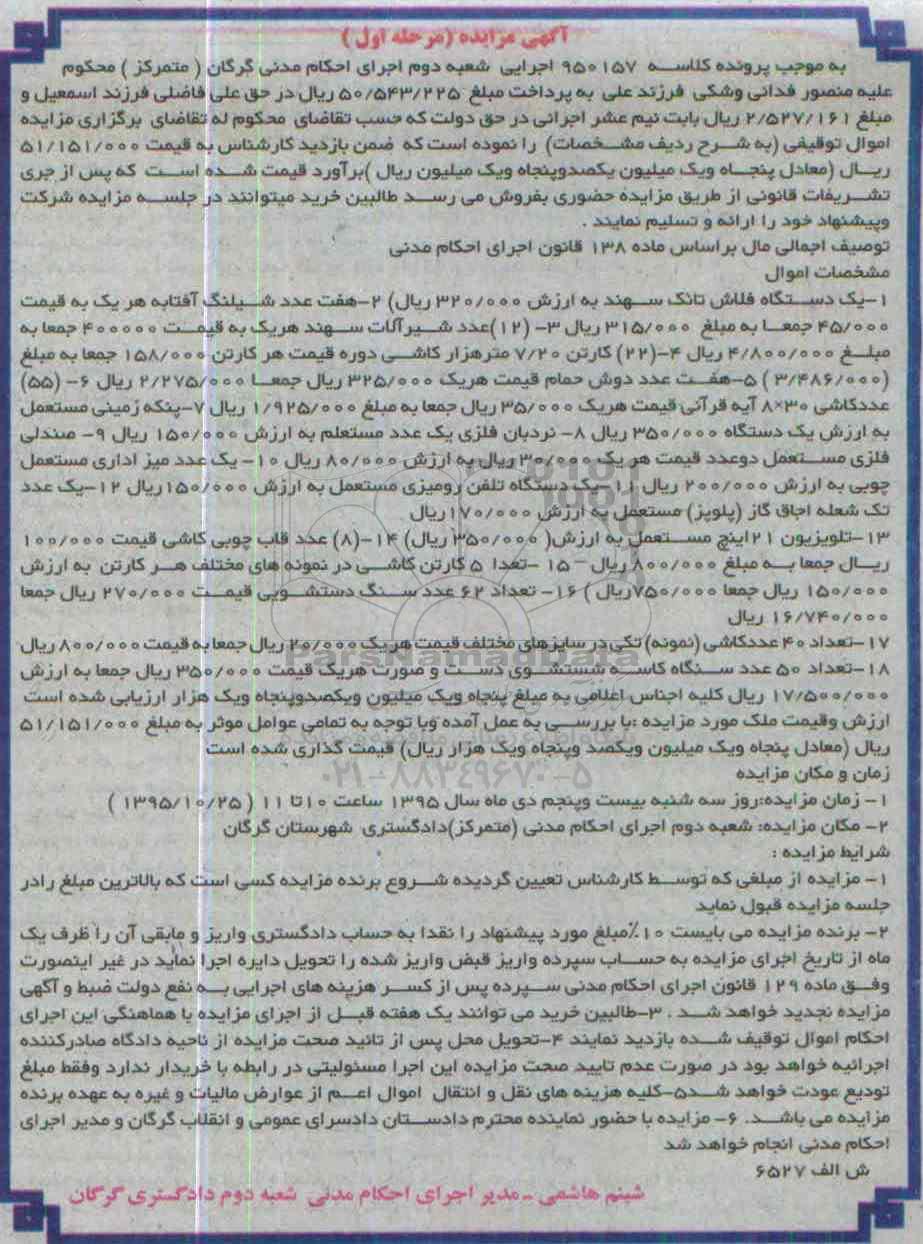 آگهی مزایده (مرحله اول)
به موجب پرونده کلاسه ۹۵۰۱۵۷ اجرایی شعبه دوم اجرای احکام مدنی گرگان ( متمرکز ) محکوم
علیه منصور فدائی وشکی فرزند علی به پرداخت مبلغ ۵۰/۵۴۳/۲۲۵ ریال در حق علی فاضلی فرزند اسمعیل و
مبلغ ۲/۵۲۷/۱۶۱ ریال بابت نیم عشر اجرائی در حق دولت که حسب تقاضای محکوم له تقاضای برگزاری مزایده
اموال توقیفی (به شرح ردیف مشخصات) را نموده است که ضمن بازدید کارشناس به قیمت ۵۱/۱۵۱/۰۰۰
ریال (معادل پنجاه ویک میلیون یکصدوپنجاه ویک میلیون ریال )برآورد قیمت شده است که پس از جری
تشریفات قانونی از طریق مزایده حضوری بفروش می رسد طالبین خرید میتوانند در جلسه مزایده شرکت
وپیشنهاد خود را ارائه و تسلیم نمایند .
توصیف اجمالی مال براساس ماده ۱۳۸ قانون اجرای احکام مدنی
مشخصات اموال
۱-یک دستگاه فلاش تانک سهند به ارزش ۳۲۰/۰۰۰ ریال) ۲-هفت عدد شیلنگ آفتابه هر یک به قیمت
۴۵/۰۰۰ جمعا به مبلغ ۳۱۵/۰۰۰ ریال ۳- (۱۲)عدد شیرآلات سهند هریک به قیمت ۴۰۰۰۰۰ جمعا به
مبلغ ۴/۸۰۰/۰۰۰ ریال ۴-(۲۲) کارتن ۷/۲۰ مترهزار کاشی دوره قیمت هر کارتن ۱۵۸/۰۰۰ جمعا به مبلغ
(۳/۴۸۶/۰۰۰ ) ۵-هفت عدد دوش حمام قیمت هریک ۳۲۵/۰۰۰ ریال جمعا ۲/۲۷۵/۰۰۰ ریال ۶- (۵۵)
عددکاشی ۳۰×۸ آیه قرآنی قیمت هریک ۳۵/۰۰۰ ریال جمعا به مبلغ ۱/۹۲۵/۰۰۰ ریال ۷-پنکه زمینی مستعمل
به ارزش یک دستگاه ۳۵۰/۰۰۰ ریال ۸- نردبان فلزی یک عدد مستعلم به ارزش ۱۵۰/۰۰۰ ریال ۹- صندلی
فلزی مستعمل دوعدد قیمت هر یک ۳۰/۰۰۰ ریال به ارزش ۸۰/۰۰۰ ریال ۱۰- یک عدد میز اداری مستعمل
چوبی به ارزش ۲۰۰/۰۰۰ ریال ۱۱-یک دستگاه تلفن رومیزی مستعمل به ارزش ۱۵۰/۰۰۰ریال ۱۲-یک عدد
تک شعله اجاق گاز (پلوپز) مستعمل به ارزش ۱۷۰/۰۰۰ریال
۱۳-تلویزیون ۲۱اینچ مستعمل به ارزش( ۳۵۰/۰۰۰ ریال) ۱۴-(۸) عدد قاب چوبی کاشی قیمت ۱۰۰/۰۰۰
ریال جمعا به مبلغ ۸۰۰/۰۰۰ ریال- ۱۵ -تغدا ۵ کارتن کاشی در نمونه های مختلف هر کارتن به ارزش
۱۵۰/۰۰۰ ریال جمعا ۷۵۰/۰۰۰ریال ) ۱۶- تعداد ۶۲ عدد سنگ دستشویی قیمت ۲۷۰/۰۰۰ ریال جمعا
۱۶/۷۴۰/۰۰۰ ریال
۱۷-تعداد ۴۰ عددکاشی (نمونه) تکی در سایزهای مختلف قیمت هریک ۲۰/۰۰۰ ریال جمعا به قیمت ۸۰۰/۰۰۰ ریال
۱۸-تعداد ۵۰ عدد سنگاه کاسه شستشوی دست و صورت هریک قیمت ۳۵۰/۰۰۰ ریال جمعا به ارزش
۱۷/۵۰۰/۰۰۰ ریال کلیه اجناس اعلامی به مبلغ پنجاه ویک میلیون ویکصدوپنجاه ویک هزار ارزیابی شده است
ارزش وقیمت ملک مورد مزایده :با بررسی به عمل آمده وبا توجه به تمامی عوامل موثر به مبلغ ۵۱/۱۵۱/۰۰۰
ریال (معادل پنجاه ویک میلیون ویکصد وپنجاه ویک هزار ریال) قیمت گذاری شده است
زمان و مکان مزایده
۱- زمان مزایده:روز سه شنبه بیست وپنجم دی ماه سال ۱۳۹۵ ساعت ۱۰تا ۱۱ ( ۱۳۹۵/۱۰/۲۵ )
۲- مکان مزایده: شعبه دوم اجرای احکام مدنی (متمرکز)دادگستری شهرستان گرگان
شرایط مزایده :
۱- مزایده از مبلغی که توسط کارشناس تعیین گردیده شروع برنده مزایده کسی است که بالاترین مبلغ رادر
جلسه مزایده قبول نماید
۲- برنده مزایده می بایست ۱۰٪مبلغ مورد پیشنهاد را نقدا به حساب دادگستری واریز و مابقی آن را ظرف یک
ماه از تاریخ اجرای مزایده به حساب سپرده واریز قبض واریز شده را تحویل دایره اجرا نماید در غیر اینصورت
وفق ماده ۱۲۹ قانون اجرای احکام مدنی سپرده پس از کسر هزینه های اجرایی به نفع دولت ضبط و آگهی
مزایده تجدید خواهد شد . ۳-طالبین خرید می توانند یک هفته قبل از اجرای مزایده با هماهنگی این اجرای
احکام اموال توقیف شده بازدید نمایند ۴-تحویل محل پس از تائید صحت مزایده از ناحیه دادگاه صادرکننده
اجرائیه خواهد بود در صورت عدم تایید صحت مزایده این اجرا مسئولیتی در رابطه با خریدار ندارد وفقط مبلغ
تودیع عودت خواهد شد۵-کلیه هزینه های نقل و انتقال اموال اعم از عوارض مالیات و غیره به عهده برنده
مزایده می باشد. ۶- مزایده با حضور نماینده محترم دادستان دادسرای عمومی و انقلاب گرگان و مدیر اجرای
احکام مدنی انجام خواهد شد
ش الف ۶۵۲۷
شبنم هاشمی - مدیر اجرای احکام مدنی شعبه دوم دادگستری گرگان
ParsNamadData
۰۲۱-۸۸۳۴۹۶۷۰-۵